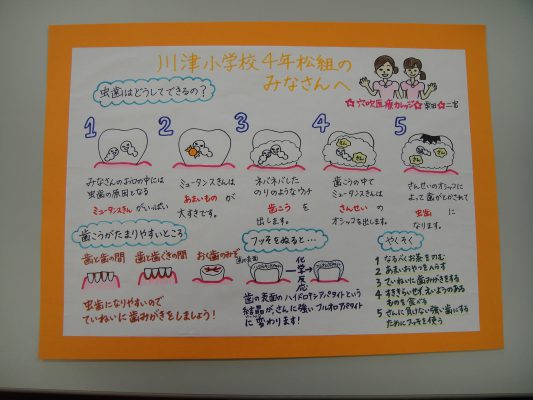 川津小学校4年松組の
みなさんへ
虫歯はどうしてできるの？
☆穴吹医療カレッジ☆ 栗田☆二宮
1
2
3
4
5
みなさんのお口の中には
虫歯の原因となる
ミュータンスきんがいっぱい
ミュータンスきんは
あまいものが
大すきです。
ネバネバした
のりのようなウンチ
歯こうを
出します。
歯こうの中で
ミュータンスきんは
さんせいの
オシッコを出します。
さんせいのオシッコに
よって歯がとかされて
虫歯に
なります。
歯こうがたまりやすいところ
歯と歯の間
歯と歯ぐきの間
おく歯のみぞ
虫歯になりやすいので
ていねいに歯みがきをしましょう！
フッそをぬると…
歯の表面
化学反応
歯の表面のハイドロキシアパタイトという
結晶が、さんに強いフルオロアパタイト
に変わります！
やくそく
1 なるべくお茶をのむ
2 あまいおやつを入らす
3 ていねいに歯みがきをする
4 すききらいせず、えいようのある
ものを食べる
5 さんに負けない強い歯にする
ためにフッそを使う